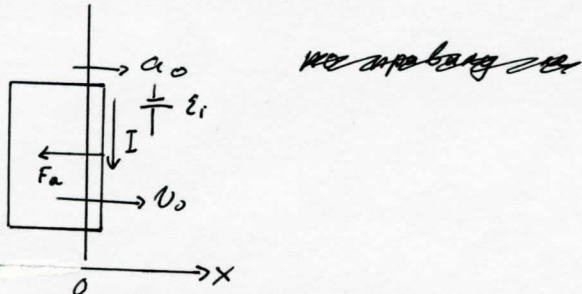 a₀
εᵢ
I
Fₐ
v₀
0
x